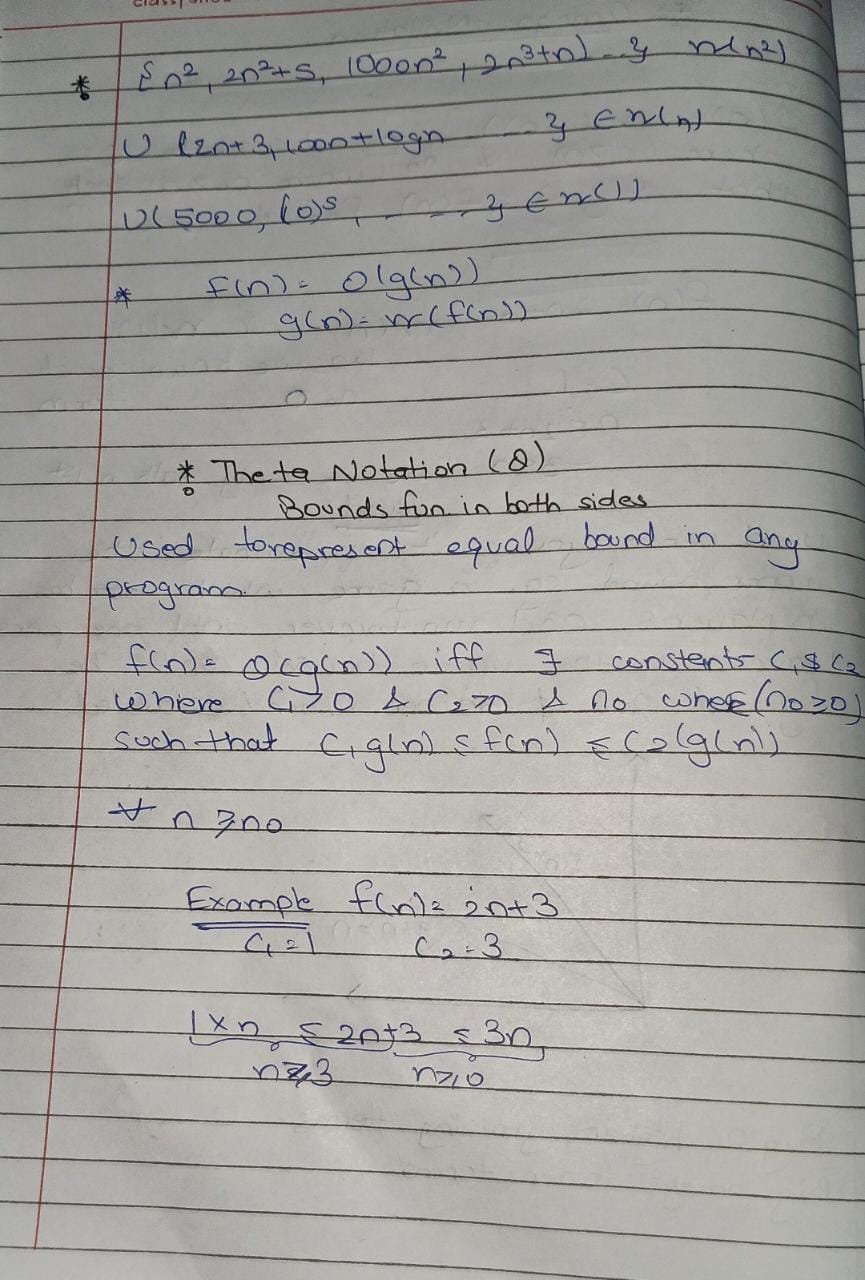 * {n², 2n²+5, 1000n², 2n³+n) - } Ω(n²)
U {2n+3, 100n+logn ---- } ∈ Ω(n)
U( 5000, (0)⁵, ------ } ∈ Ω(1)
* f(n) = O(g(n))
g(n) = Ω(f(n))
* Theta Notation (θ)
Bounds fun in both sides
Used torepresent equal bound in any
program.
f(n) = θ(g(n)) iff ∃ constents C₁ & C₂
where C₁>0 & C₂>0 & no (no≥0)
such that C₁g(n) ≤ f(n) ≤ C₂(g(n))
∀ n ≥ no
Example f(n) = 2n+3
C₁=1 C₂=3
1×n ≤ 2n+3 ≤ 3n
n≥3 n≥0